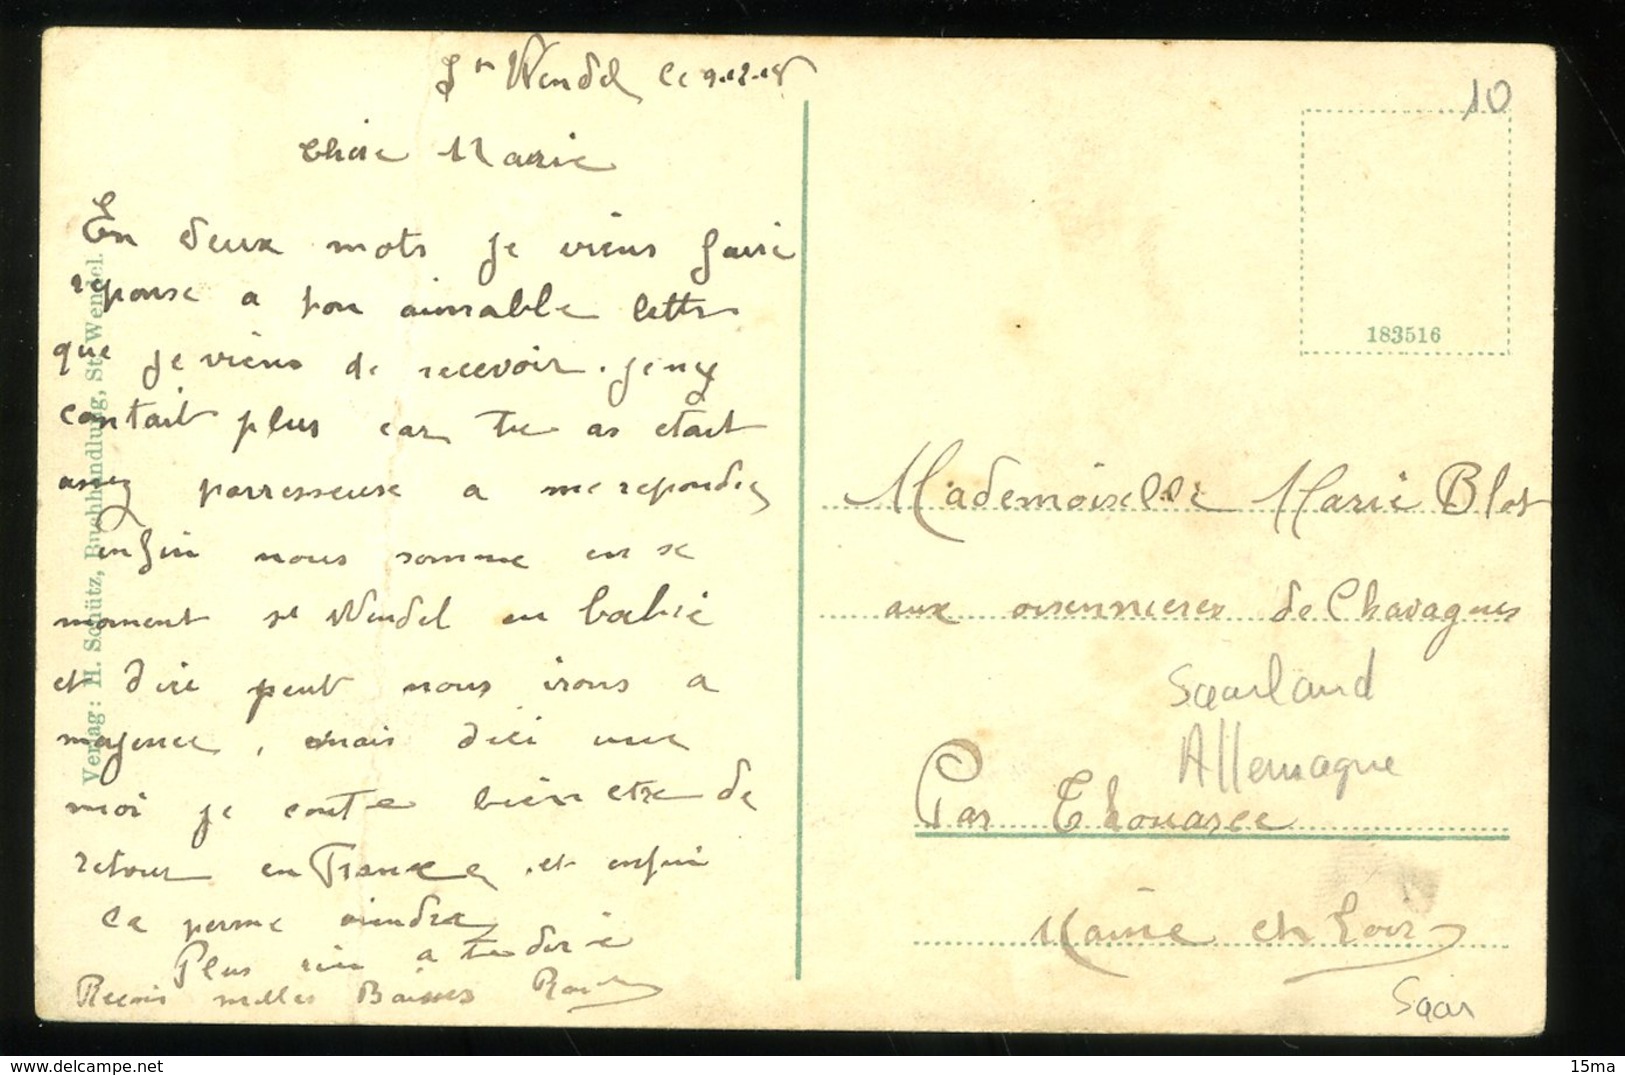 St Wendel le 9-12-18
Chère Marie
En deux mots je viens faire
reponse a ton aimable lettre
que je viens de recevoir. je ny
contait plus car tu as etait
assez parresseuse a me repondre
enfin nous somme en se
moment st Wendel en
et dire peut nous irons a
mayence, mais dici une
moi je conte bien etre de
retour en France, et enfin
la perme viendra
Plus rien a te dire
Recois milles Baisers
Verlag: H. Schütz, Buchhandlung, St. Wendel.
10
183516
Mademoiselle Marie Blot
aux de Chavagnes
Saarland
Allemagne
Par Thouarcé
Maine et Loire
Saar
15ma